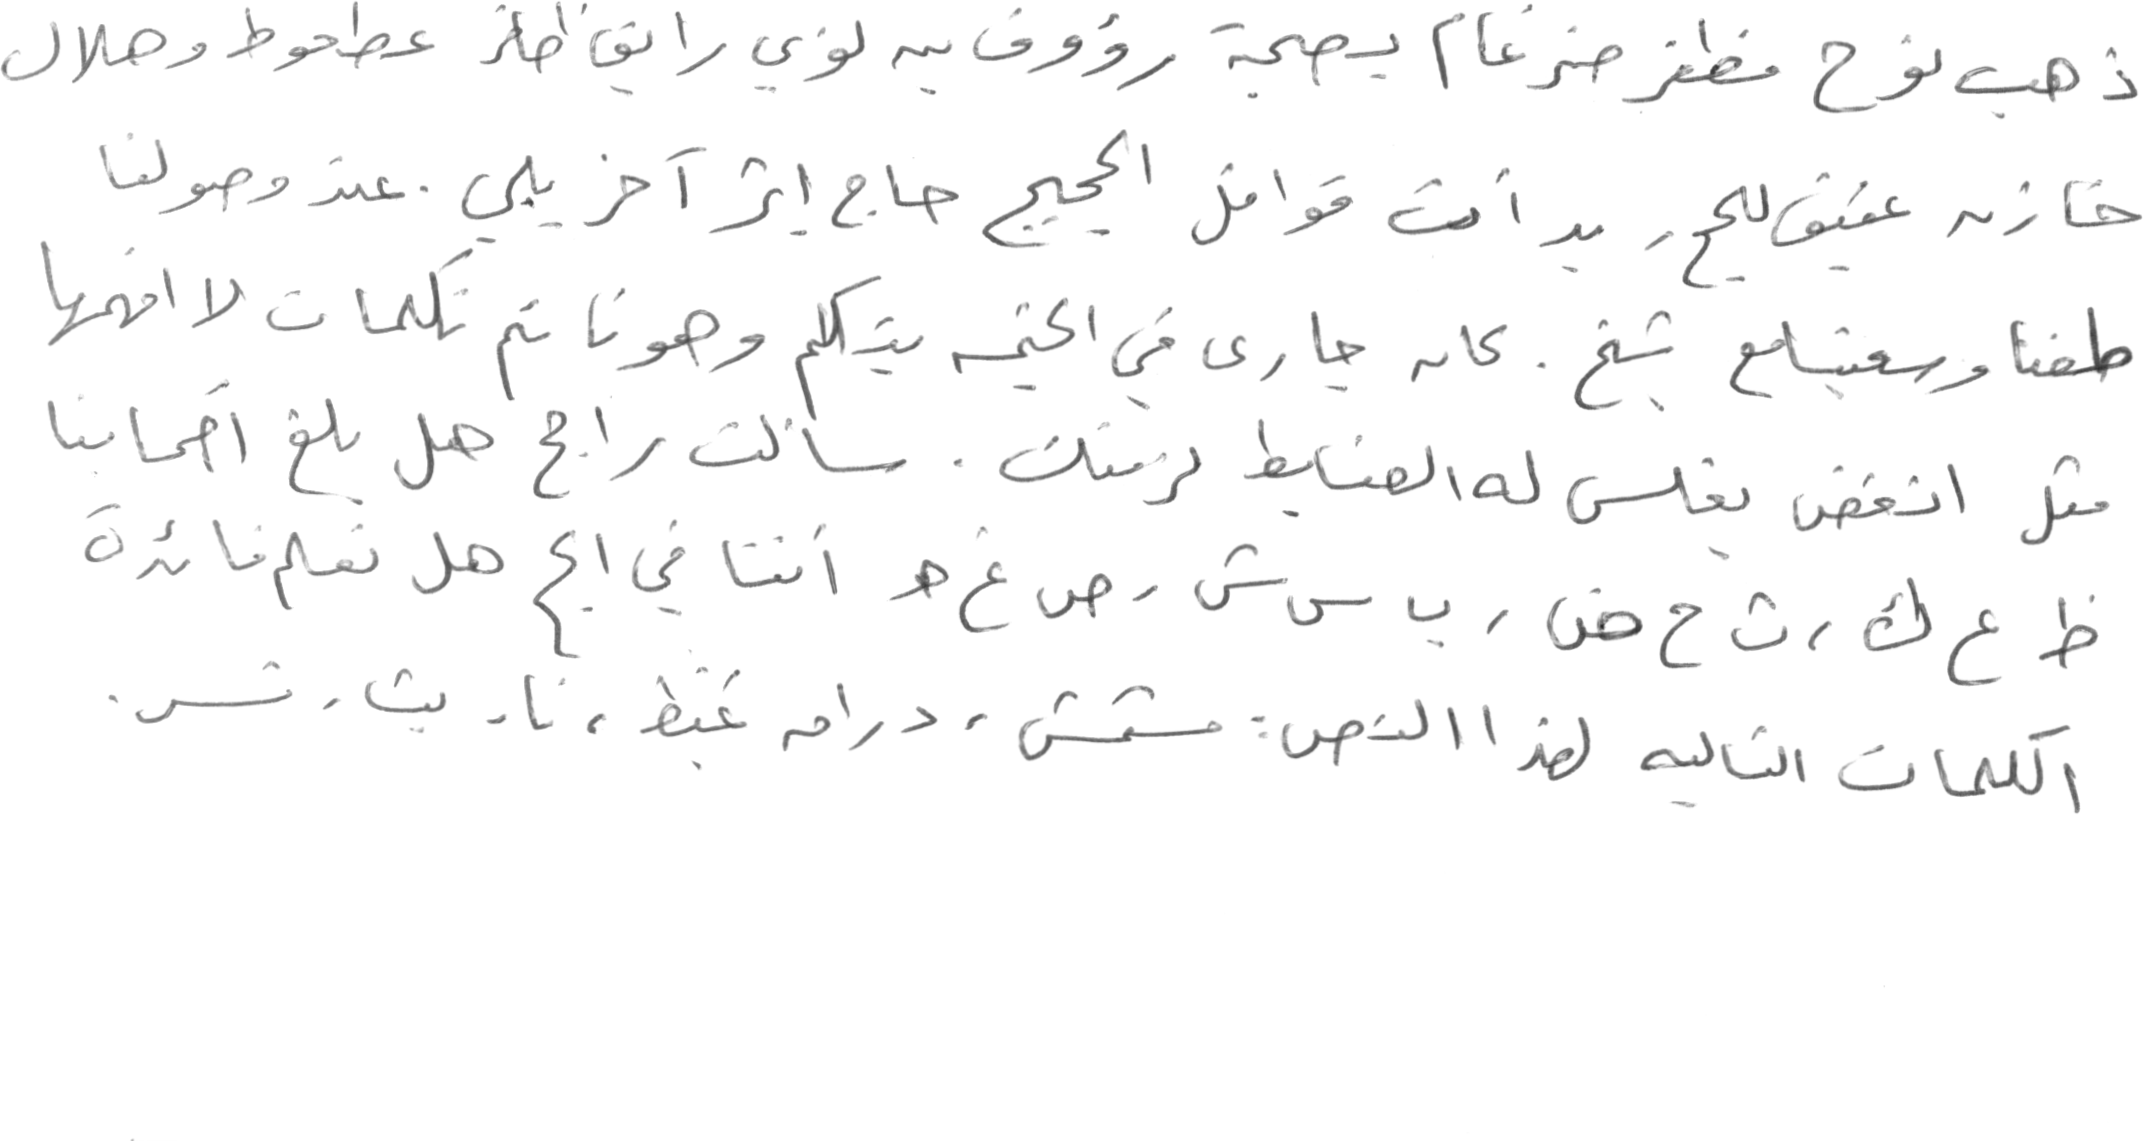 ذهب نوح مظفر ضرغام بصحبة رؤوف بن لؤي رايق ظافر عطعوط وهلال
خازن عفيق للحج، بدأت قوافل الحجيج حاج إثر آخر يلبي. عند وصولنا
طفنا وسعينا مع شيخ. كان جاري في الخيمه يتكلم وهو نائم بكلمات لا افهمها
مثل انغض بغلس له الضابط لرمثك. سألت راجح هل بلغ أصحابنا
ظ ع ك، ث ح ض، ب س ش، ص غ ه أننا في الحج هل تعلم فائدة
الكلمات التاليه لهذا النص: مشمش، دراق، غبظ، نا، بث، تس.